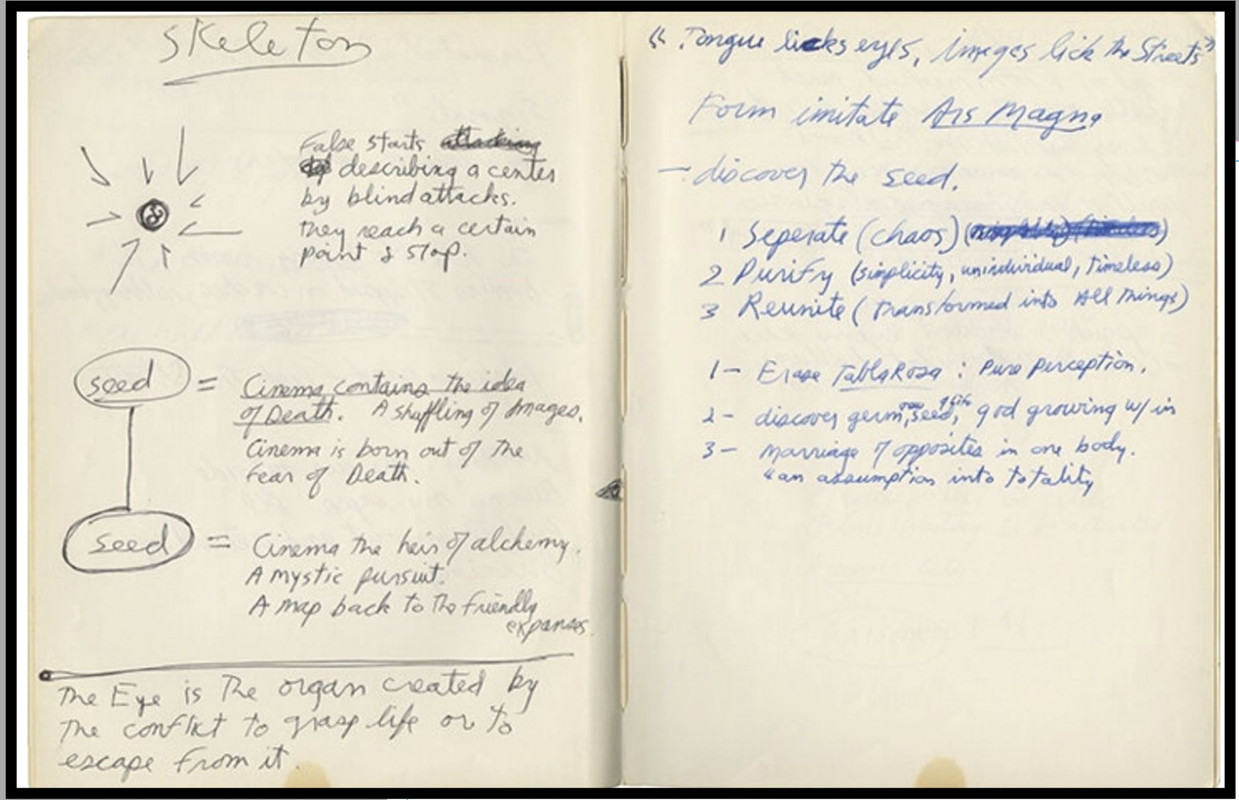 Skeleton
False starts attacking
describing a center
by blind attacks.
they reach a certain
point & stop.
seed = Cinema contains the idea
of Death. A shuffling of Images.
Cinema is born out of the
fear of Death.
seed = Cinema the heir of alchemy.
A mystic pursuit.
A map back to the friendly
expanses.
The Eye is The organ created by
The conflict to grasp life or to
escape from it.
"Tongue licks eyes, images lick the Streets"
Form imitate Ars Magna
- discover the seed.
1 Seperate (chaos)
2 Purify (simplicity, unindividual, timeless)
3 Reunite (Transformed into All Things)
1- Erase TablaRosa : Pure Perception.
2- discover germ, seed, god growing w/in
3- marriage of opposites in one body.
"an assumption into totality